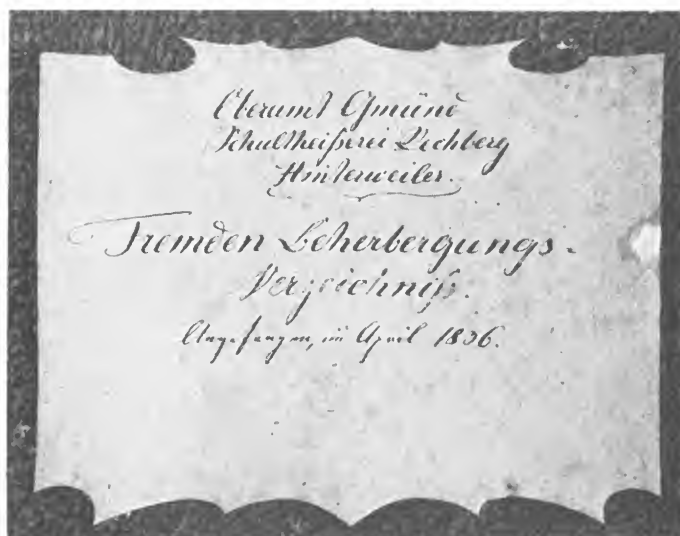 Oberamt Gmünd
Schultheißerei Rechberg
Hinterweiler.
Fremden Beherbergungs-
Verzeichniß.
Angefangen, im April 1836.